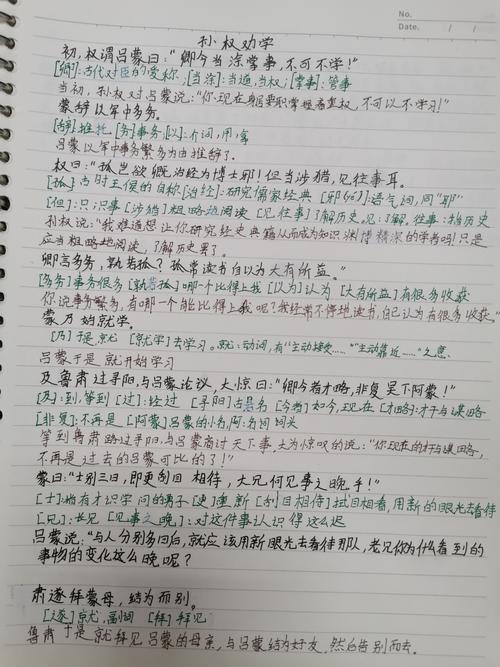 No.
Date. / /
孙权劝学
初，权谓吕蒙曰："卿今当涂掌事，不可不学！"
[卿]：古代对臣的爱称；[当涂]：当道，当权；[掌事]：管事
当初，孙权对吕蒙说："你现在身居要职掌握着事权，不可以不学习！"
蒙辞以军中多务。
[辞]：推托。[务]：事务；[以]：介词，用；拿
吕蒙以军中事务繁多为由推辞了。
权曰："孤岂欲卿治经为博士邪！但当涉猎，见往事耳。
[孤]：古时王侯的自称[治经]：研究儒家经典 [邪(yé)]：语气词，同"耶"
[但]：只；只事[涉猎]粗略地阅读 [见往事]了解历史。见：了解，往事：指历史
孙权说："我难道想让你研究经史典籍从而成为知识渊博精深的学者吗！只是
应当粗略地阅读，了解历史罢了。
卿言多务，孰若孤？孤常读书自以为大有所益。"
[多务]事务很多 [孰若孤]哪一个比得上我 [以为]认为 [大有所益]有很多收获
你说事务繁多，有哪一个能比得上我呢？我经常不停地读书，自己认为有很多收获。"
蒙乃始就学。
[乃]于是，就 [就学]去学习。就：动词，有"主动接受……""主动靠近……"之意。
吕蒙于是就开始学习
及鲁肃过寻阳，与吕蒙论议，大惊曰："卿今者才略，非复吴下阿蒙！"
[及]：到，等到 [过]：经过 [寻阳]古县名 [今者]如今，现在 [才略]：才干与谋略
[非复]：不再是 [阿蒙]吕蒙的小名，阿：名词词头
等到鲁肃路过寻阳，与吕蒙商讨天下事，大为惊叹的说："你现在的才干与谋略，
不再是过去的吕蒙可比的了！"
蒙曰："士别三日，即更刮目相待，大兄何见事之晚乎！"
[士]：指有才识学问的男子[更]重新 [刮目相待]拭目相看，用新的眼光去看待
[兄]：长兄 [见事之晚]：对这件事认识得这么迟
吕蒙说："与人分别多日后，就应该用新眼光去看待那人，老兄你为什么看到的
事物的变化这么晚呢？
肃遂拜蒙母，结友而别。
[遂]就，副词 [拜]拜见
鲁肃于是就拜见吕蒙的母亲，与吕蒙结为好友，然后告别而去。